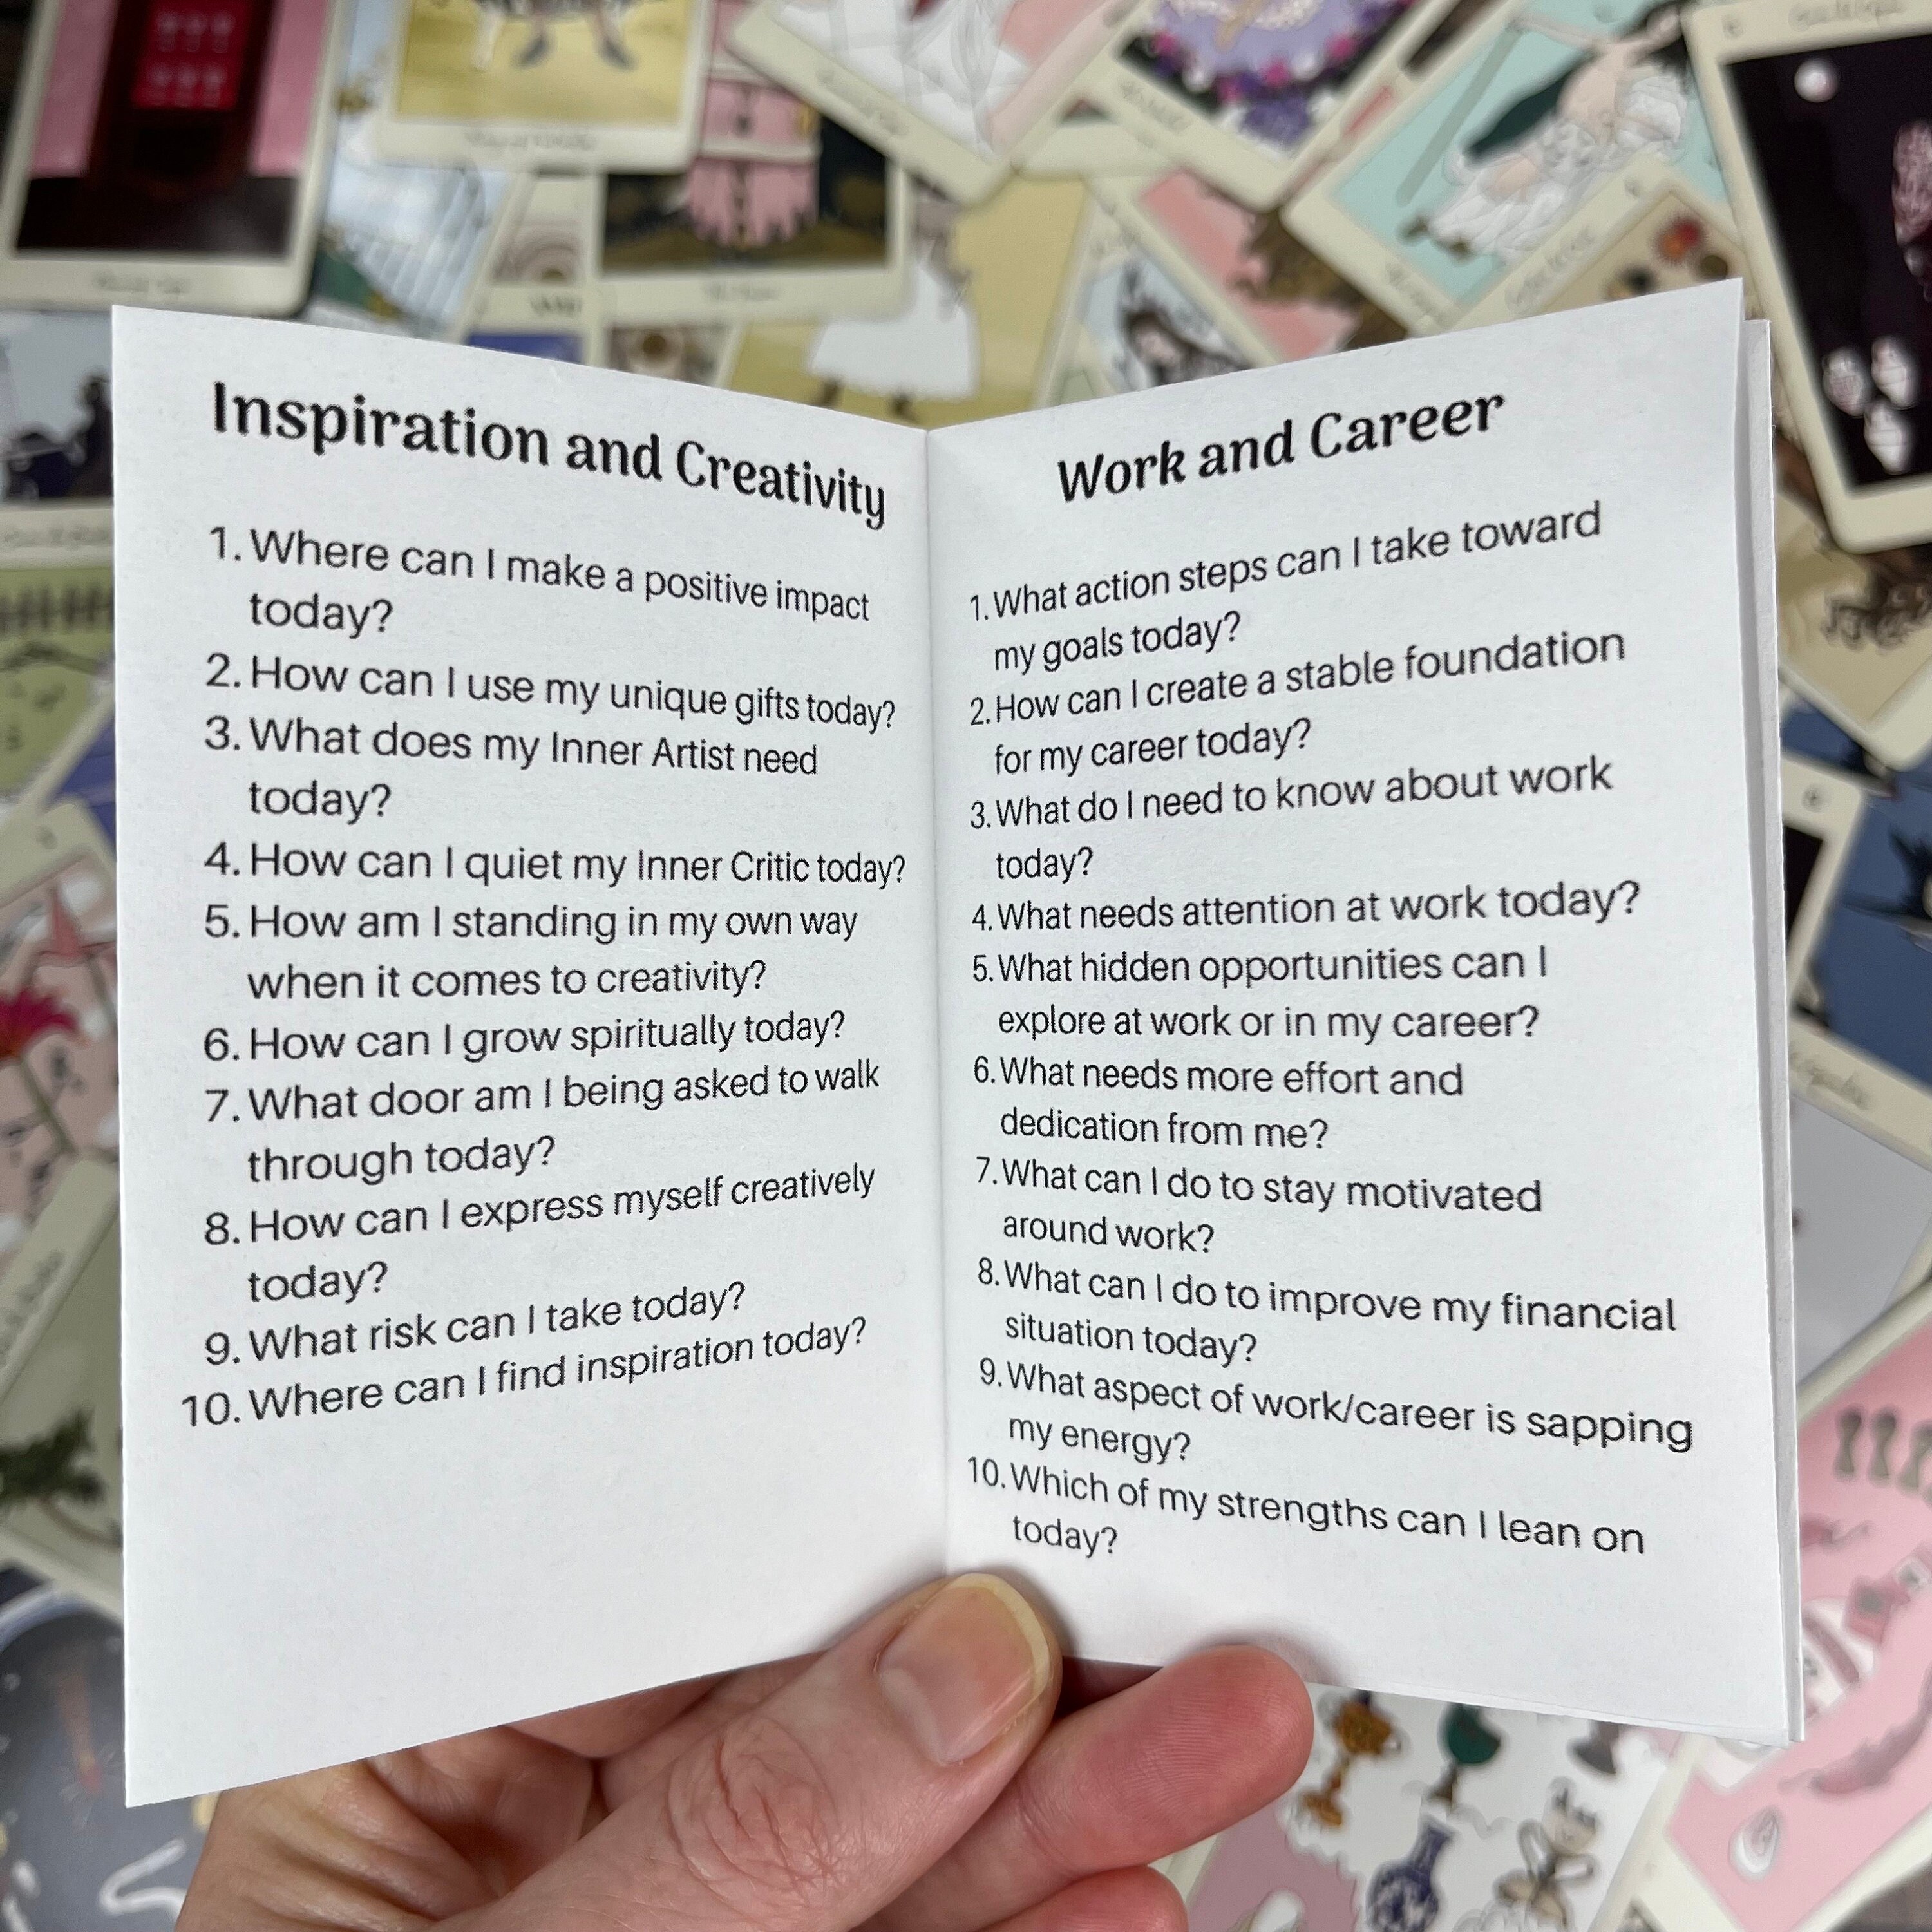 Inspiration and Creativity
1. Where can I make a positive impact
today?
2. How can I use my unique gifts today?
3. What does my Inner Artist need
today?
4. How can I quiet my Inner Critic today?
5. How am I standing in my own way
when it comes to creativity?
6. How can I grow spiritually today?
7. What door am I being asked to walk
through today?
8. How can I express myself creatively
today?
9. What risk can I take today?
10. Where can I find inspiration today?
Work and Career
1. What action steps can I take toward
my goals today?
2. How can I create a stable foundation
for my career today?
3. What do I need to know about work
today?
4. What needs attention at work today?
5. What hidden opportunities can I
explore at work or in my career?
6. What needs more effort and
dedication from me?
7. What can I do to stay motivated
around work?
8. What can I do to improve my financial
situation today?
9. What aspect of work/career is sapping
my energy?
10. Which of my strengths can I lean on
today?